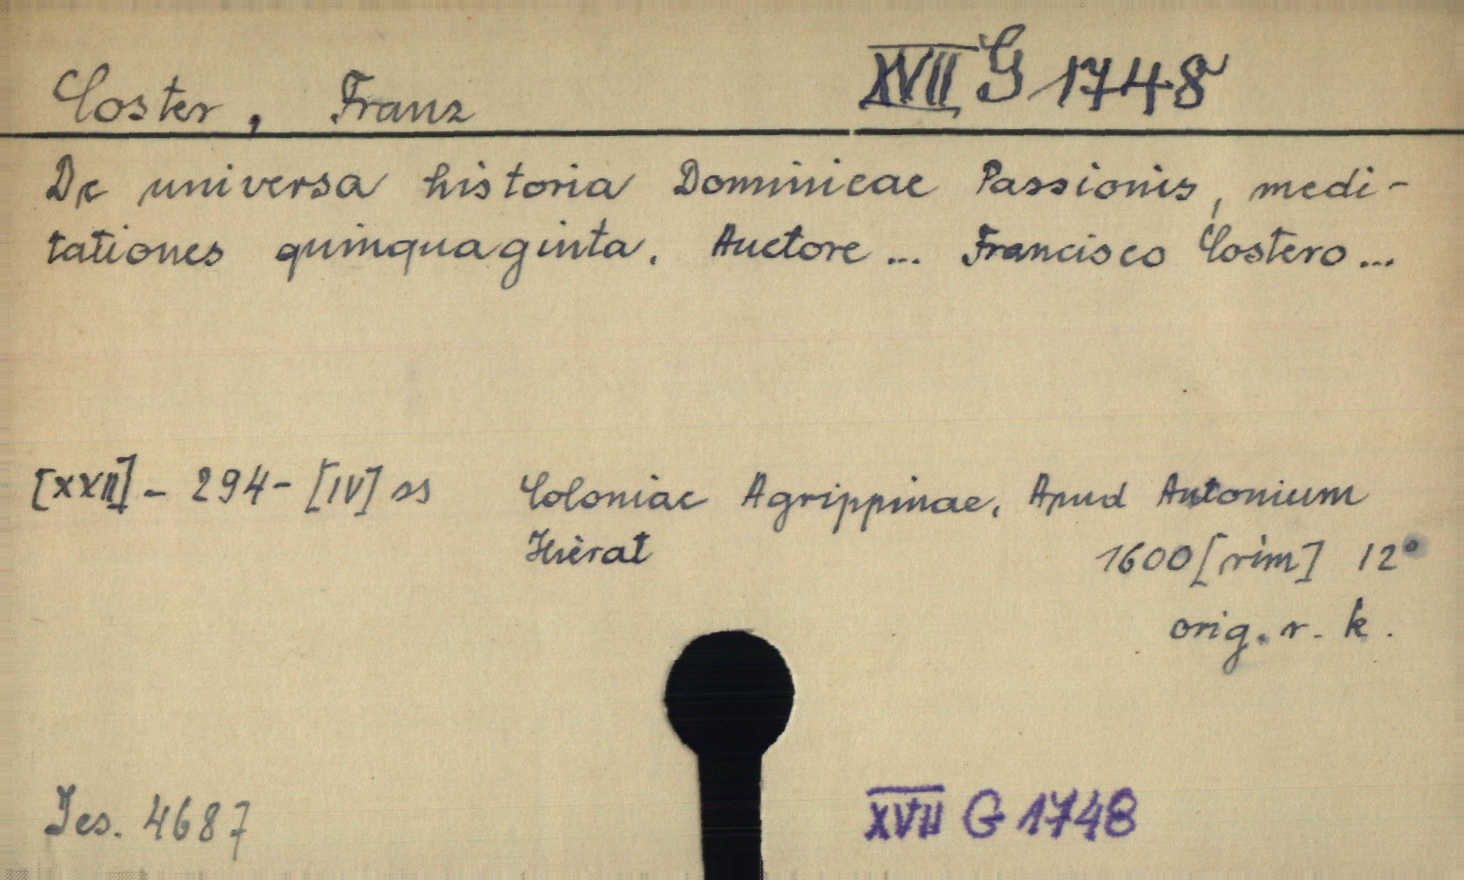 Coster, Franz XVII G 1748
De universa historia Dominicae Passionis, medi-
tationes quinquaginta. Auctore ... Francisco Costero ...
[XXII] - 294 - [IV] ss Coloniae Agrippinae, Apud Antonium
Hierat 1600 [rim] 12°
orig. r. k.
Jes. 4687 XVII G 1748